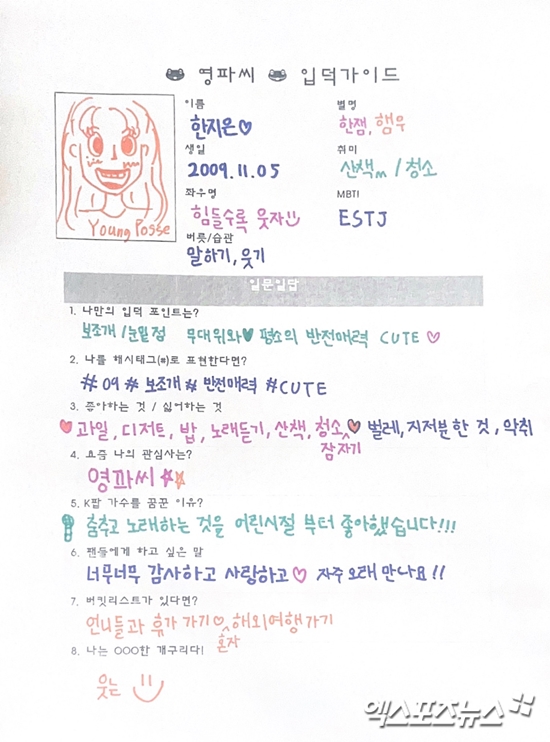 영파씨 입덕가이드
이름 별명
한지은♡ 한잼, 햄우
생일 취미
2009.11.05 산책m / 청소
좌우명 MBTI
힘들수록 웃자 ESTJ
버릇/습관
말하기, 웃기
Young Posse
일문일답
1. 나만의 입덕 포인트는?
보조개 / 눈밑점 무대위와♥ 평소의 반전매력 CUTE ♡
2. 나를 해시태그(#)로 표현한다면?
#09 #보조개 #반전매력 #CUTE
3. 좋아하는 것 / 싫어하는 것
♥과일, 디저트, 밥, 노래듣기, 산책, 청소, ♥ 벌레, 지저분한 것, 악취
잠자기
4. 요즘 나의 관심사는?
영파씨 ☆☆
5. K팝 가수를 꿈꾼 이유?
춤추고 노래하는 것을 어린시절 부터 좋아했습니다!!!
6. 팬들에게 하고 싶은 말
너무너무 감사하고 사랑하고♡ 자주 오래 만나요!!
7. 버킷리스트가 있다면?
언니들과 휴가 가기♡, 해외여행가기
혼자
8. 나는 OOO한 개구리다!
웃는
엑스포츠뉴스